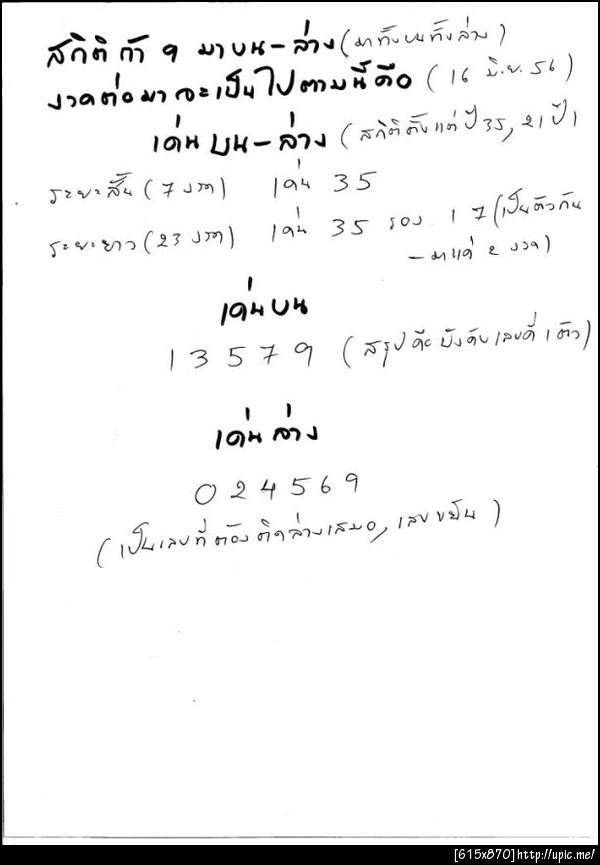 สถิติถ้า 9 มาบน-ล่าง (มาทั้งบนทั้งล่าง)
งวดต่อมาจะเป็นไปตามนี้คือ (16 มิ.ย. 56)
เด่นบน-ล่าง (สถิติตั้งแต่ปี 35, 21 ปี)
ระยะสั้น (7 งวด) เด่น 35
ระยะยาว (23 งวด) เด่น 35 รอง 17 (เป็นตัวกัน
- มาแค่ 2 งวด)
เด่นบน
1 3 5 7 9 (สรุปคือบังคับเลขคี่ 1 ตัว)
เด่นล่าง
0 2 4 5 6 9
(เป็นเลขที่ต้องติดล่างเสมอ, เลขขยัน)
[615x870] http://upic.me/